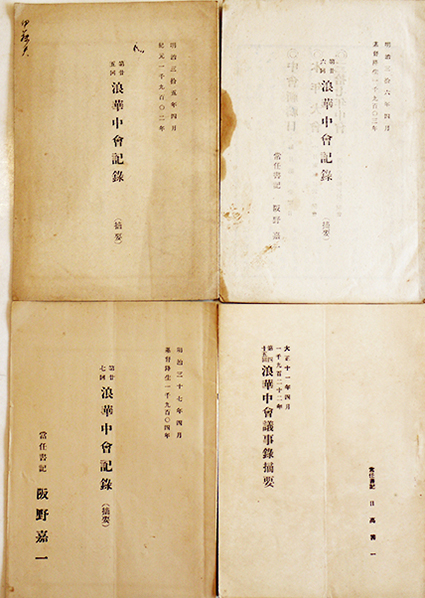 明治三拾五年四月
紀元一千九百〇二年
第廿五回 浪華中會記錄 (摘要)
明治三拾六年四月
基督降生一千九百〇三年
第廿六回 浪華中會記錄 (摘要)
常任書記 阪野嘉一
明治三十七年四月
基督降生一千九百〇四年
第廿七回 浪華中會記錄 (摘要)
常任書記 阪野嘉一
大正十一年四月
一千九百二十二年
第四十五回 浪華中會議事錄摘要
常任書記 日高善一